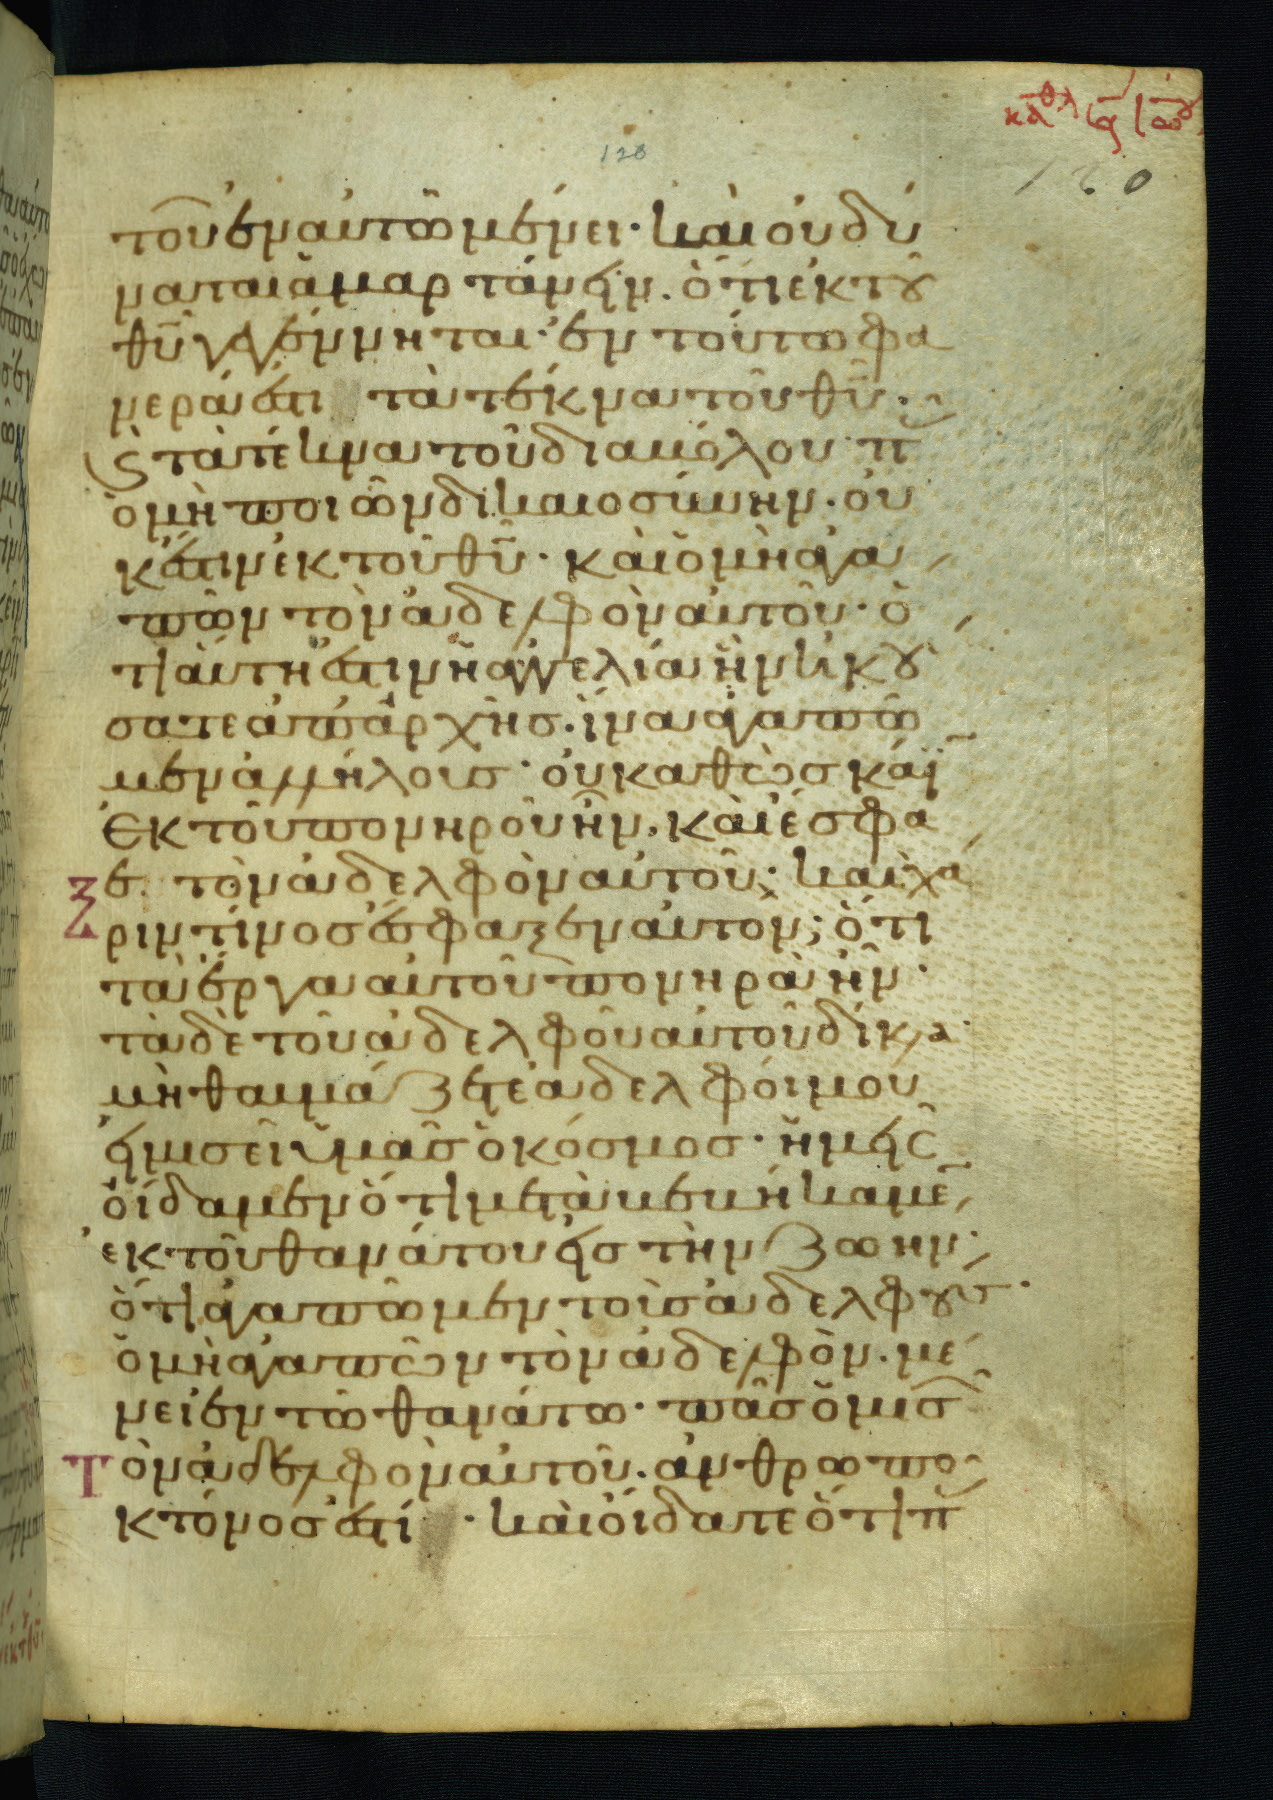 128
120
τοῦ ἐν αὐτῶ μένει· καὶ οὐ δύ
ναται ἁμαρτάνειν. ὅτι ἐκ τοῦ
θῦ γεγέννηται· ἐν τούτω φα
νερά ἐστι τὰ τέκνα τοῦ θῦ·
ϛ τὰ τέκνα τοῦ διαβόλου π
ὁ μὴ ποιῶν δικαιοσύνην· οὐ
κ ἔστιν ἐκ τοῦ θῦ· καὶ ὁ μὴ ἀγα
πῶν τὸν ἀδελφὸν αὐτοῦ· ὅ
τι αὕτη ἐστιν ἡ ἀγγελία ἣν ἠκού
σατε ἀπ' ἀρχῆσ· ἵνα ἀγαπῶ
μεν ἀλλήλουσ· οὐ καθὼσ κάϊ
ἐκ τοῦ πονηροῦ ἦν, καὶ ἔσφα
ξε τὸν ἀδελφὸν αὐτοῦ· καὶ χά
ριν τίνοσ ἔσφαξεν αὐτον; ὅτι
τὰ ἔργα αὐτοῦ πονηρὰ ἦν·
τὰ δὲ τοῦ ἀδελφοῦ αὐτοῦ δίκαια·
μὴ θαυμάζετε ἀδελφόι μου
εἰ μισεῖ ὑμᾶσ ὁ κόσμοσ· ἡμεῖς
οἴδαμεν ὅτι μεταβεβήκαμε
ἐκ τοῦ θανάτου εἰσ τὴν ζωην·
ὅτι ἀγαπῶμεν τοὺσ ἀδελφούσ·
ὁ μὴ ἀγαπῶν τὸν ἀδελφὸν. μέ
νει ἐν τῶ θανάτω· πᾶσ ὁ μισῶ
τὸν ἀδελφὸν αὐτοῦ. ἀνθρωπο
κτόνοσ ἐστί· καὶ οἴδατε ὅτι π